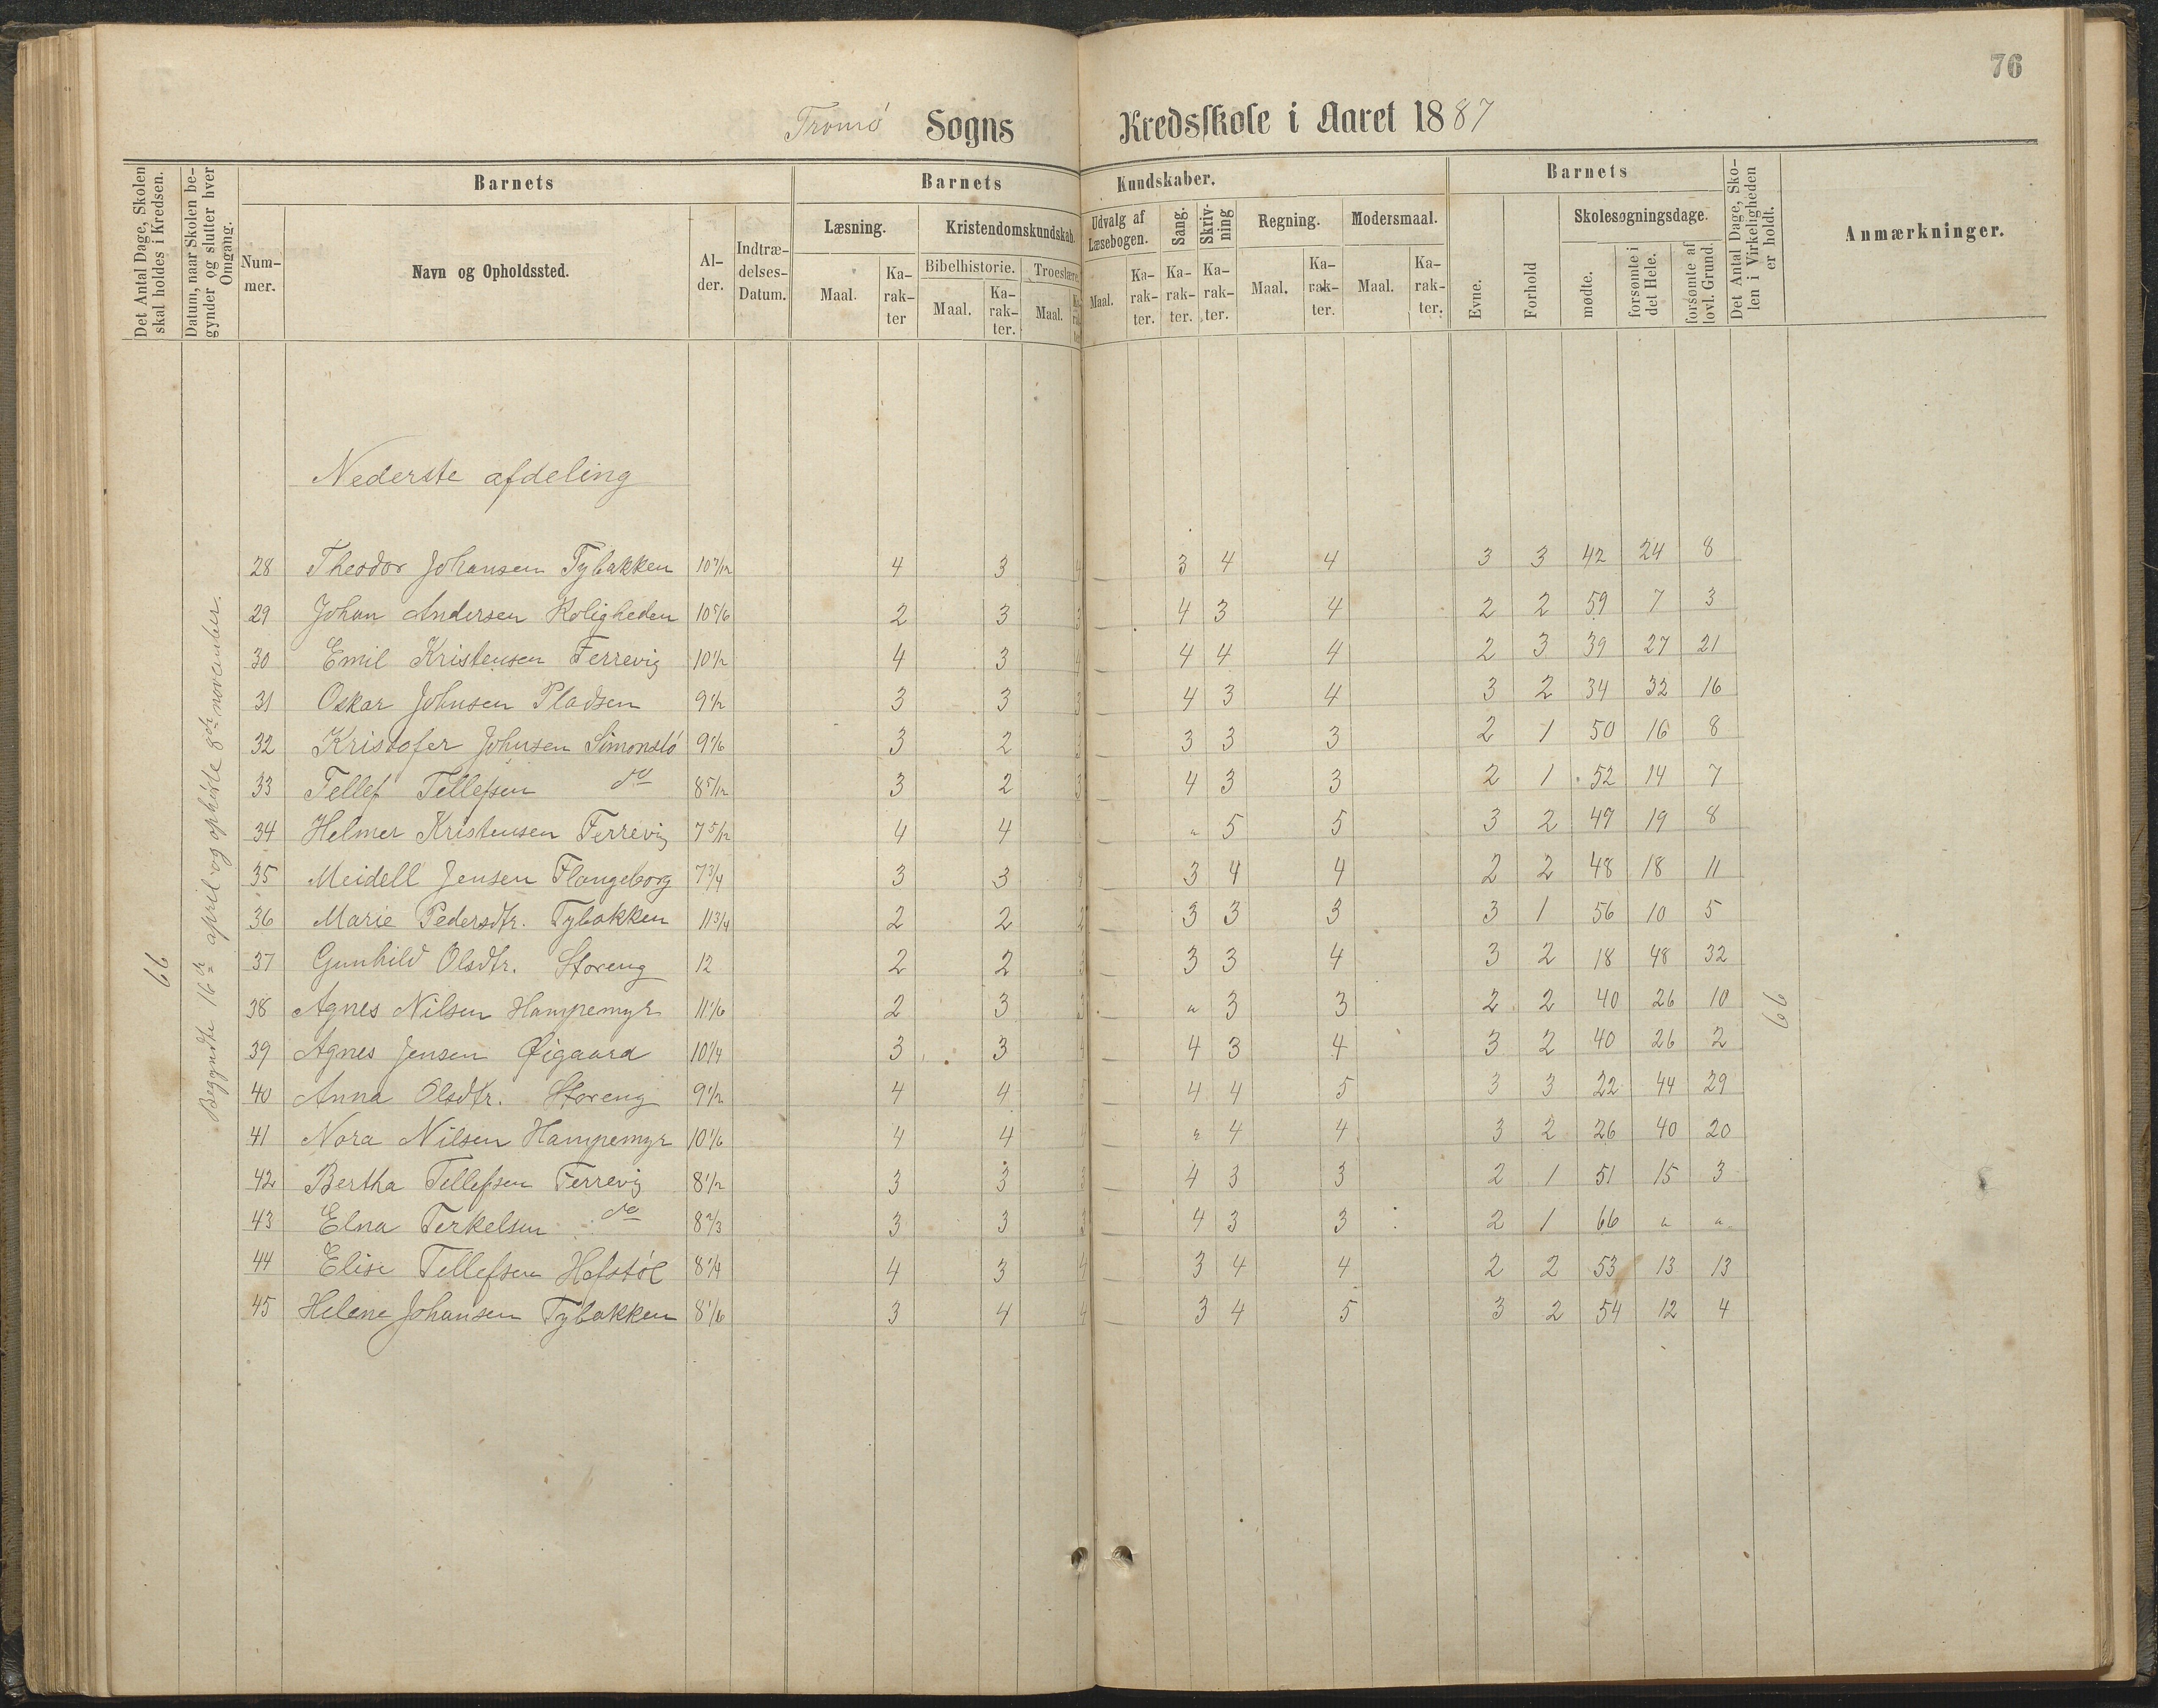 76
Tromø Sogns Kredsskole i Aaret 1887
Det Antal Dage, Skolen skal holdes i Kredsen.
Datum, naar Skolen begynder og slutter hver Omgang.
Barnets
Nummer.
Navn og Opholdssted.
Alder.
Indtrædelses-Datum.
Barnets Kundskaber.
Læsning.
Maal.
Karakter
Kristendomskundskab.
Bibelhistorie.
Maal.
Karakter.
Troeslære
Maal.
Udvalg af Læsebogen.
Maal.
Karakter.
Sang.
Karakter.
Skrivning
Karakter.
Regning.
Maal.
Karakter.
Modersmaal.
Maal.
Karakter.
Barnets
Evne.
Forhold
Skolesøgningsdage.
mødte.
forsømte i det Hele.
forsømte af lovl. Grund.
Det Antal Dage, Skolen i Virkeligheden er holdt.
Anmærkninger.
66
Begyndte 16de april og ophørte 8de november.
Nederste afdeling
28 Theodor Johansen Tybakken 10 7/12 4 3 4 3 4 4 3 3 42 24 8
29 Johan Andersen Roligheden 10 5/6 2 3 3 4 3 4 2 2 59 7 3
30 Emil Kristensen Færrevig 10 1/2 4 3 4 4 4 4 2 3 39 27 21
31 Oskar Johnsen Pladsen 9 1/2 3 3 3 4 3 4 3 2 34 32 16
32 Kristofer Johnsen Simonstø 9 1/6 3 2 3 3 3 3 2 1 50 16 8
33 Tellef Tellefsen do 8 5/12 3 2 3 4 3 3 2 1 52 14 7
34 Helmer Kristensen Færrevig 7 5/12 4 4 " 5 5 3 2 47 19 8
35 Meidell Jensen Flangeborg 7 3/4 3 3 4 3 4 4 2 2 48 18 11
36 Marie Pedersdtr. Tybakken 11 3/4 2 2 2 3 3 3 3 1 56 10 5
37 Gunhild Olsdtr. Storeng 12 2 2 3 3 3 4 3 2 18 48 32
38 Agnes Nilsen Hampemyr 11 1/6 2 3 3 " 3 3 2 2 40 26 10
39 Agnes Jensen Øigaard 10 1/4 3 3 4 4 3 4 3 2 40 26 2
40 Anna Olsdtr. Storeng 9 1/2 4 4 5 4 4 5 3 3 22 44 29
41 Nora Nilsen Hampemyr 10 1/6 4 4 4 " 4 4 3 2 26 40 20
42 Bertha Tellefsen Færrevig 8 1/2 3 3 3 4 3 3 2 1 51 15 3
43 Elna Terkelsen do 8 2/3 3 3 3 4 3 3 2 1 66 " "
44 Elise Tellefsen Hofstøl 8 1/4 4 3 4 3 4 4 2 2 53 13 13
45 Helene Johansen Tybakken 8 1/6 3 4 4 3 4 5 3 2 54 12 4
66